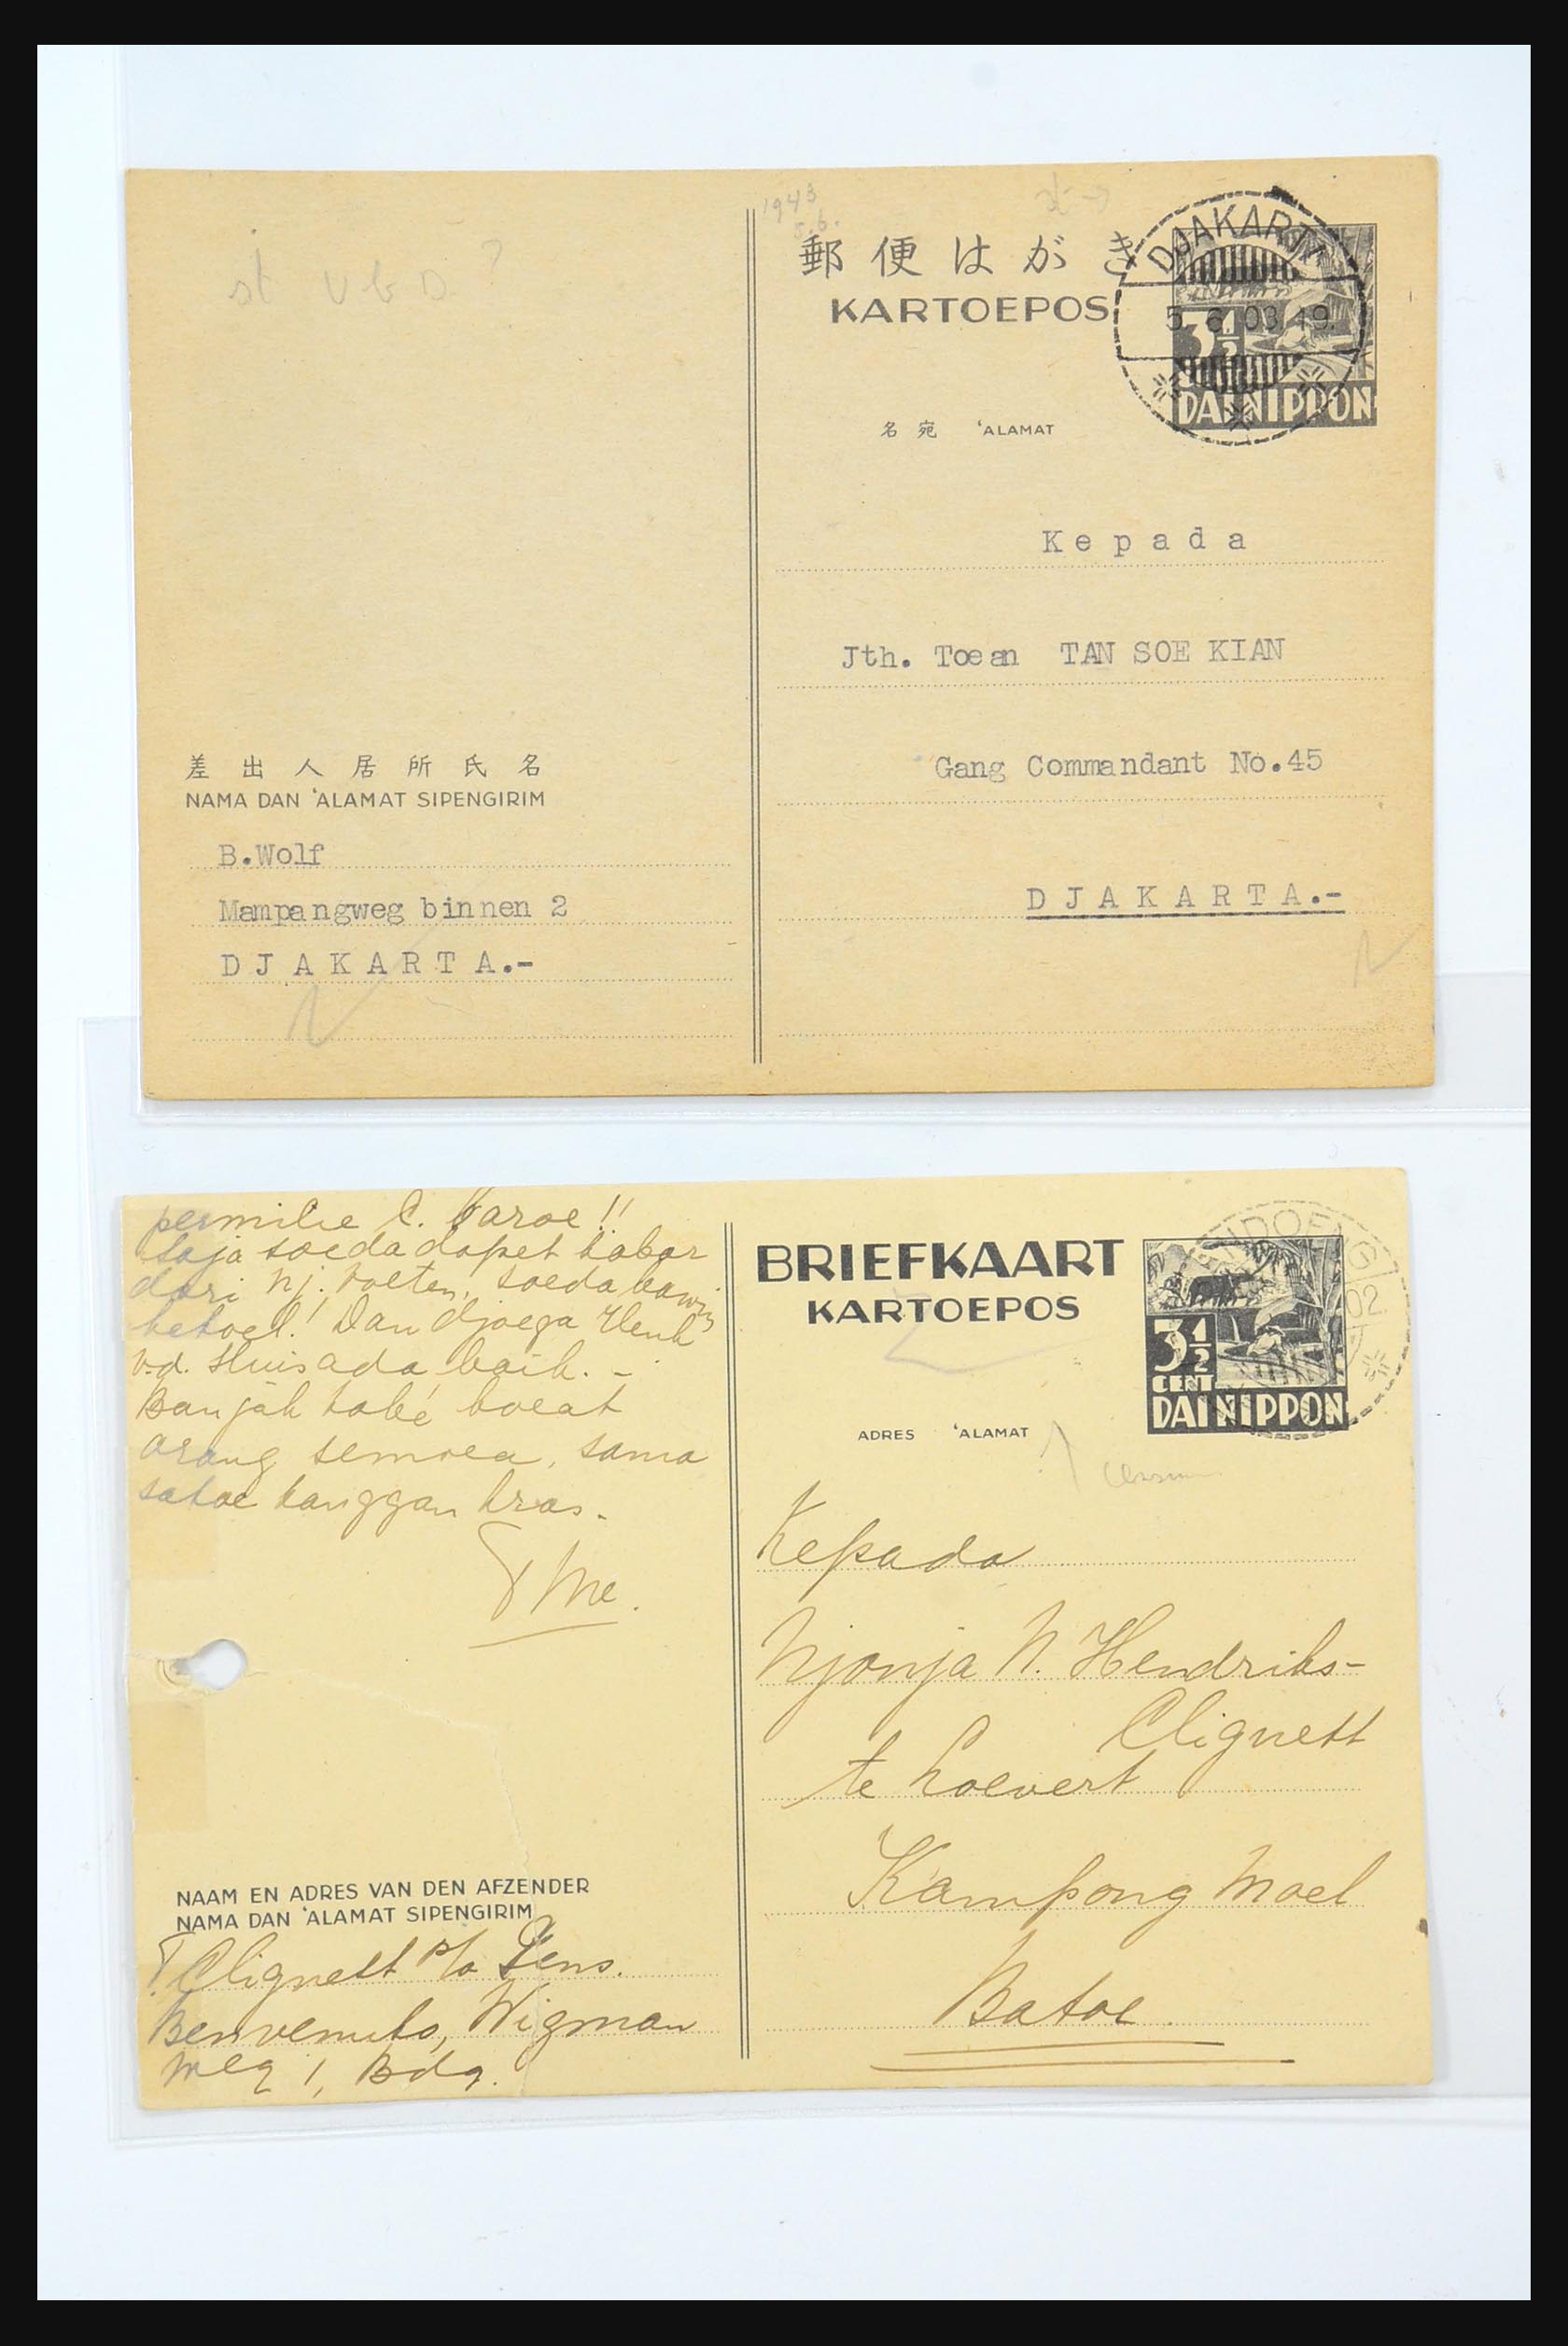 st
1943
5.6.
郵便はがき
KARTOEPOS
DJAKARTA
5. 6. 03 19.
3 1/2
DAI NIPPON
名宛 'ALAMAT
Kepada
Jth. Toean TAN SOE KIAN
Gang Commandant No.45
DJAKARTA.-
差出人居所氏名
NAMA DAN 'ALAMAT SIPENGIRIM
B.Wolf
Mampangweg binnen 2
DJAKARTA.-
permilie C. Varoe!!
Saja soeda dapet kabar
dari Nj. Voeten, soeda kawin
betoel! Dan djoega Henk
v.d. Sluis ada baik. -
Banjak tabé boeat
orang semoea, sama
satoe kanggan kras.
T Me.
BRIEFKAART
KARTOEPOS
BANDOENG
02
3 1/2
CENT
DAI NIPPON
ADRES 'ALAMAT
Kepada
Njonja N. Hendriks-
Clignett
te Loevert
Kampong Mael
Batoe.
NAAM EN ADRES VAN DEN AFZENDER
NAMA DAN 'ALAMAT SIPENGIRIM
T. Clignett p/a Pens.
Benvenuto, Wigman
weg 1, Bdg.